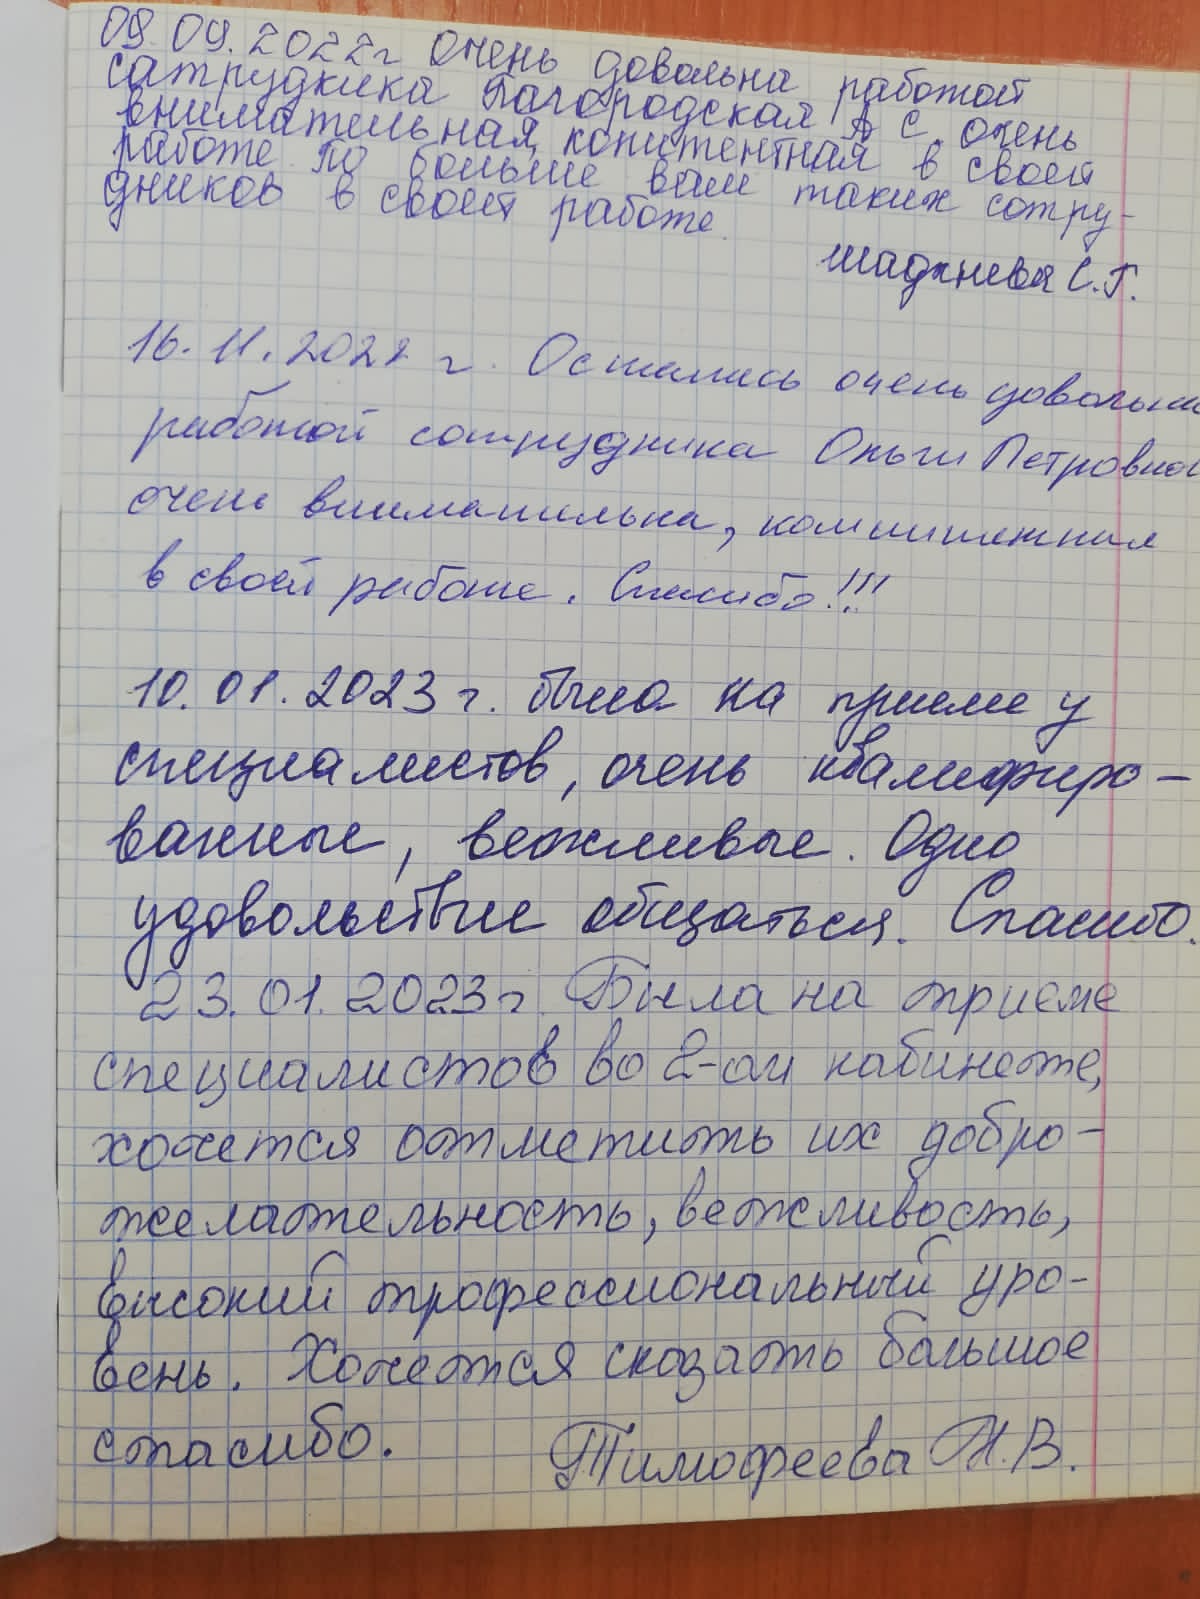 09.09.2022г Очень довольна работой
сатрудника Багородская А С. очень
внимательная, копитентная в своей
работе. По больше вам таких сотру-
дников в своей работе.
С.Г.
16.11.2022 г. Остались очень довольны
работой сотрудника Ольги Петровной
очень внимательна, компитентная
в своей работе. Спасибо!!!
10.01.2023 г. была на приеме у
специалистов, очень квалифиро-
ванные, вежливые. Одно
удовольствие общаться. Спасибо.
23.01.2023г. Была на приеме
специалистов во 2-ом кабинете,
хочется отметить их добро-
желательность, вежливость,
высокий профессиональный уро-
вень. Хочется сказать большое
спасибо.
Тимофеева Н.В.